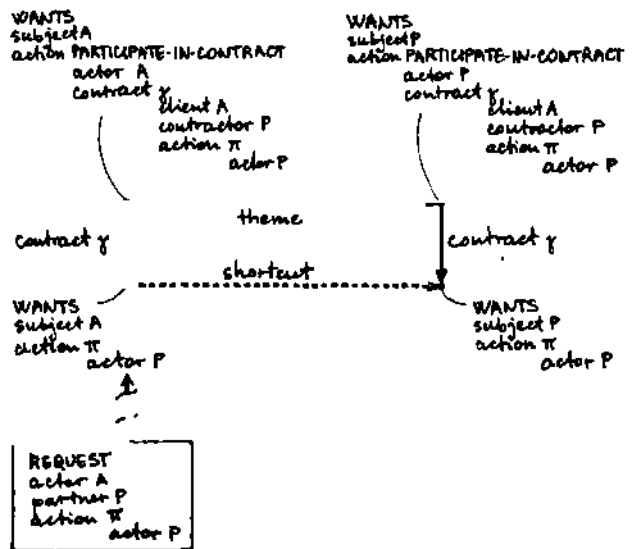 WANTS
subject A
action PARTICIPATE-IN-CONTRACT
actor A
contract γ
client A
contractor P
action π
actor P
WANTS
subject P
action PARTICIPATE-IN-CONTRACT
actor P
contract γ
client A
contractor P
action π
actor P
theme
contract γ
contract γ
shortcut
WANTS
subject A
action π
actor P
WANTS
subject P
action π
actor P
REQUEST
actor A
partner P
action π
actor P